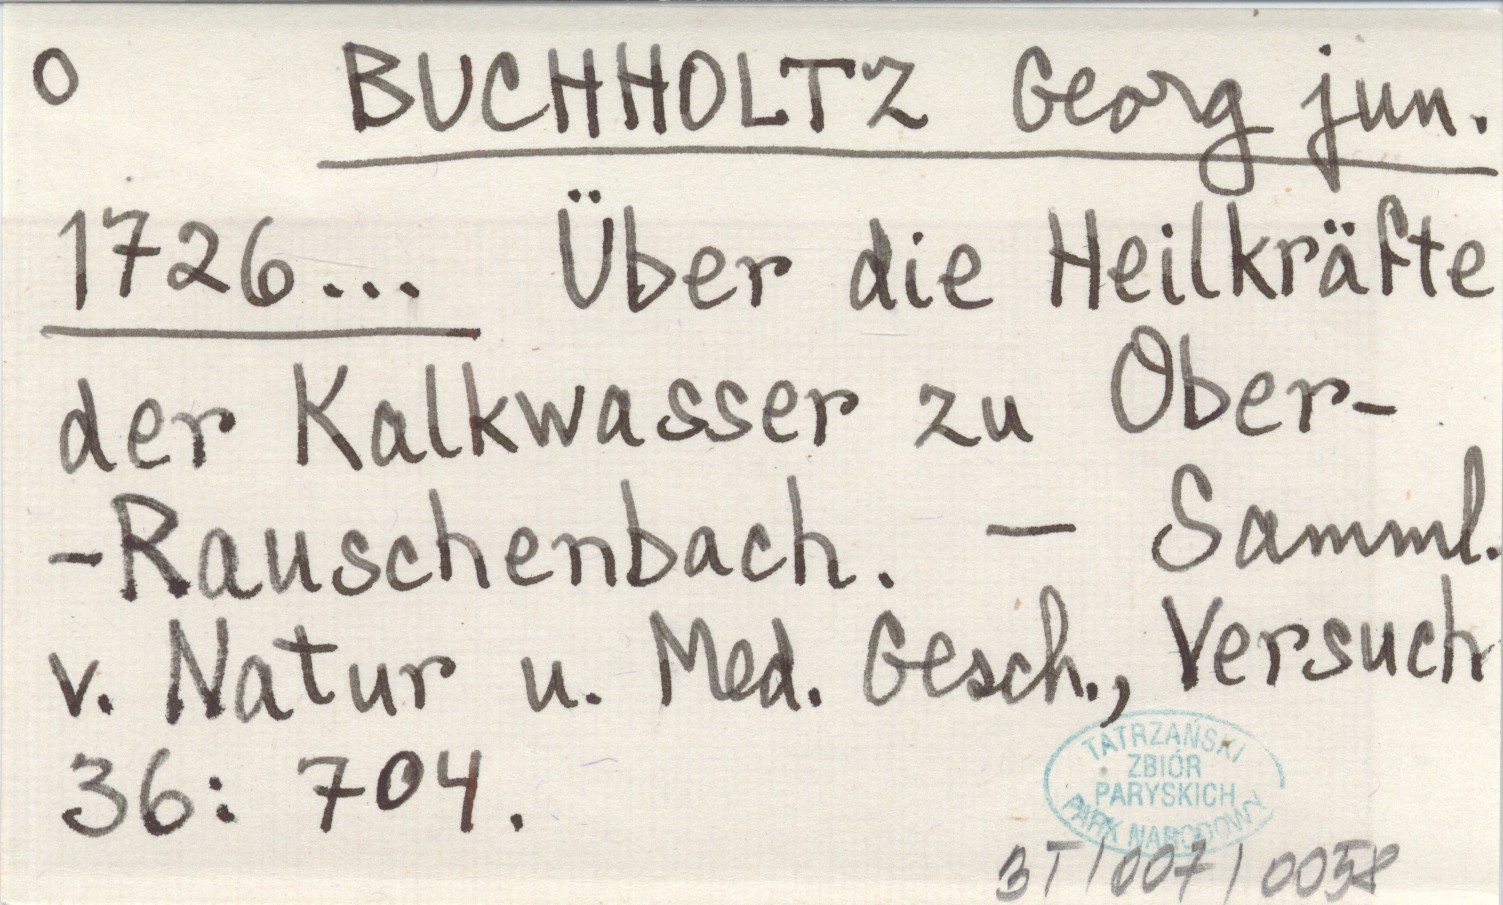 o BUCHHOLTZ Georg jun.
1726... Über die Heilkräfte
der Kalkwasser zu Ober-
-Rauschenbach. — Samml.
v. Natur u. Med. Gesch., Versuch
36: 704.
TATRZAŃSKI
ZBIÓR
PARYSKICH
PARK NARODOWY
BT/007/0058